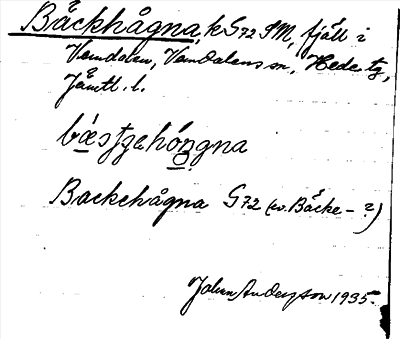 Båckhågna, k G72 SM, fjäll i
Vemdalen, Vemdalens sn, Hede tg,
Jämtl. l.
Backehågna G72 (ev. Bäcke- ?)
Johan Anderson 1935.